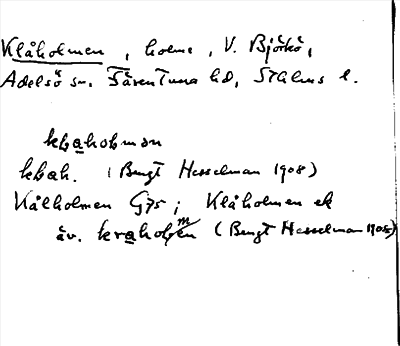 Klåholmen, holme, V. Björkö,
Adelsö sn. Färentuna hd, Sthlms l.
kḷaholmən
kḷah. (Bengt Hesselman 1908)
Kålholmen G75; Klåholmen ek
äv. kraholmen (Bengt Hesselman 1905)